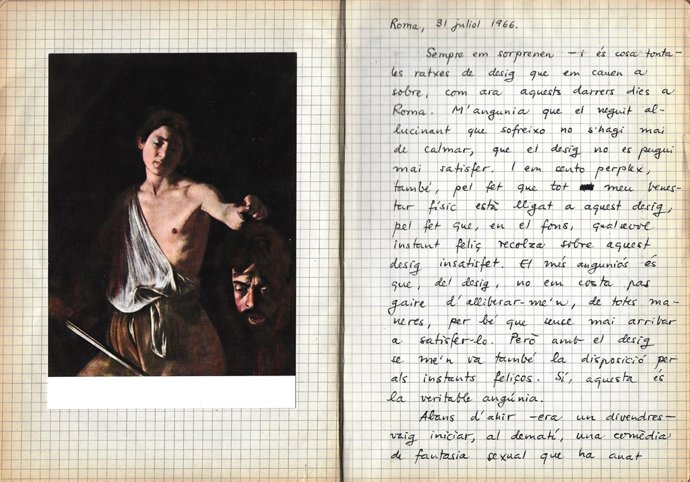 Roma, 31 juliol 1966.
Sempre em sorprenen —i és cosa tonta—
les ratxes de desig que em cauen a
sobre, com ara aquests darrers dies a
Roma. M'angunia que el neguit al-
lucinant que sofreixo no s'hagi mai
de calmar, que el desig no es pugui
mai satisfer. I em sento perplex,
també, pel fet que tot meu benes-
tar físic està lligat a aquest desig,
pel fet que, en el fons, qualsevol
instant feliç recolza sobre aquest
desig insatisfet. El més anguniós és
que, del desig, no em costa pas
gaire d'alliberar-me'n, de totes ma-
neres, per bé que sense mai arribar
a satisfer-lo. Però amb el desig
se me'n va també la disposició per
als instants feliços. Sí, aquesta és
la veritable angúnia.
Abans d'ahir -era un divendres-
vaig iniciar, al dematí, una comèdia
de fantasia sexual que ha anat